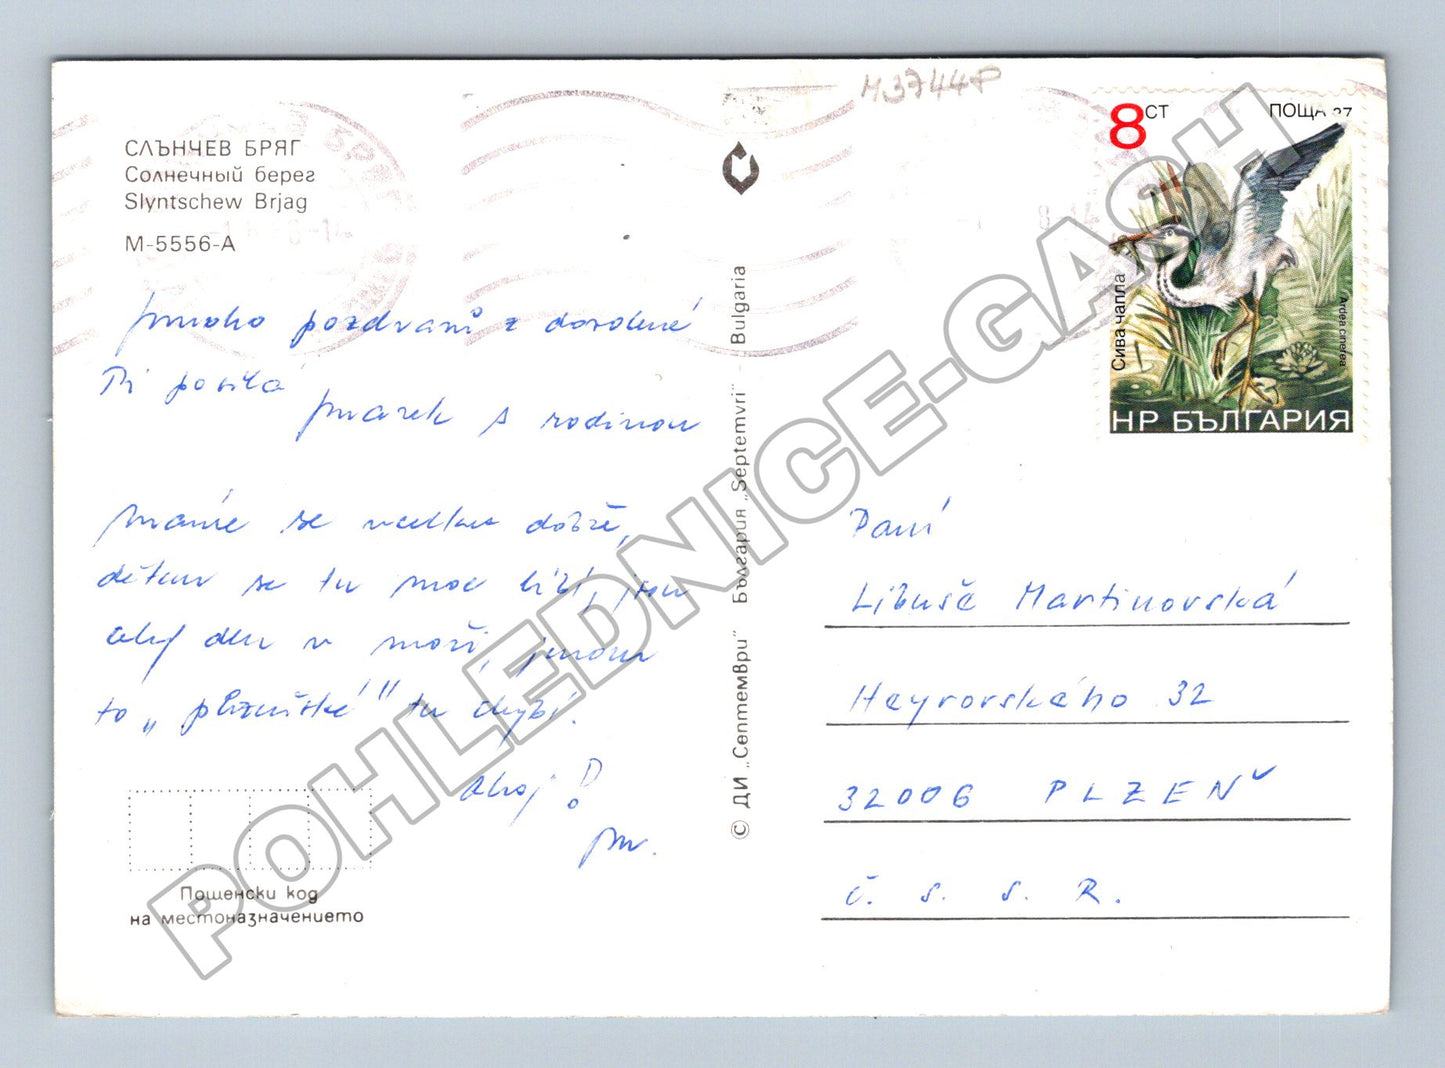 M3744P
СЛЪНЧЕВ БРЯГ
Солнечный берег
Slyntschew Brjag
M-5556-A
8 СТ
ПОЩА
Сива чапла
Ardea cinerea
НР БЪЛГАРИЯ
mnoho pozdravů z dovolené
Ti posílá
marek s rodinou
máme se vcelku dobře,
dětem se tu moc líbí, jsou
celý den v moři, jenom
to „plzeňské" tu chybí.
Ahoj!
m.
Пощенски код
на местоназначението
© ДИ „Септември" България „Septemvri" Bulgaria
Paní
Libuše Martinovská
Heyrovského 32
32006 PLZEŇ
č. s. s. R.
POHLEDNICE-GASH